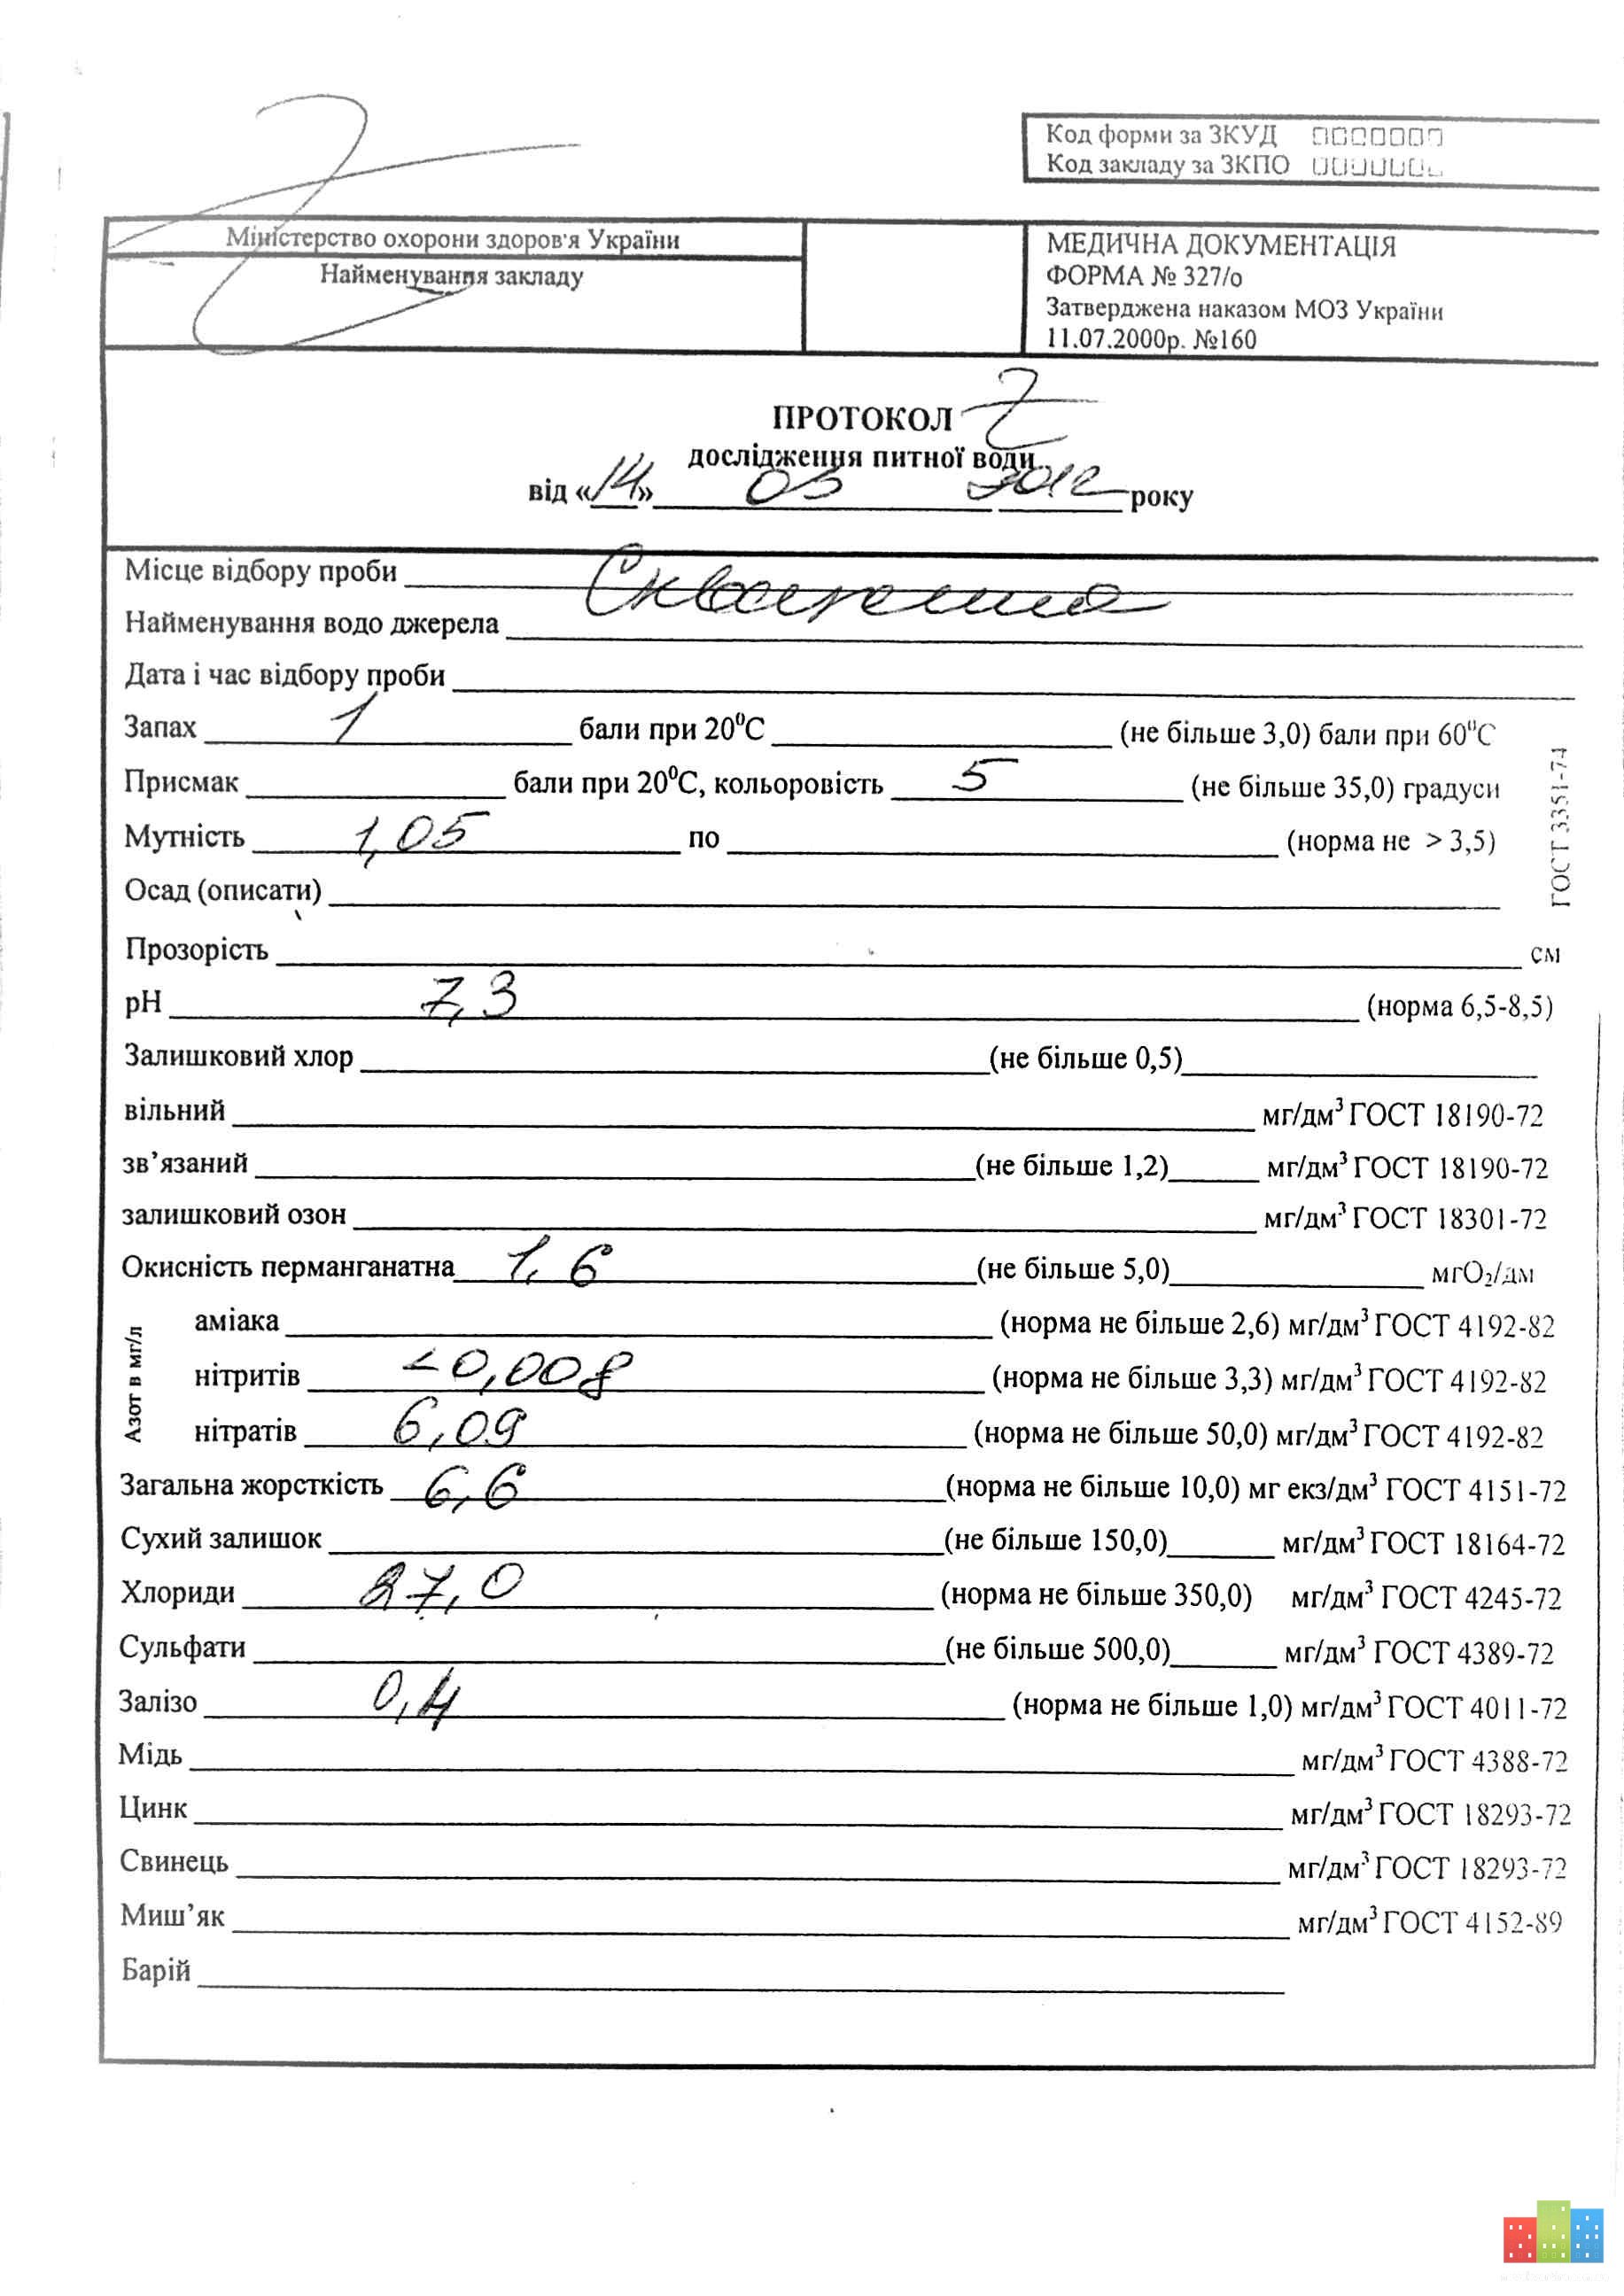 Код форми за ЗКУД
Код закладу за ЗКПО
Міністерство охорони здоров'я України
Найменування закладу
МЕДИЧНА ДОКУМЕНТАЦІЯ
ФОРМА № 327/о
Затверджена наказом МОЗ України
11.07.2000р. №160
ПРОТОКОЛ 7
дослідження питної води
від «14» 03 2012 року
Місце відбору проби Скважина
Найменування водо джерела
Дата і час відбору проби
Запах 1 бали при 20⁰С (не більше 3,0) бали при 60⁰С
Присмак бали при 20⁰С, кольоровість 5 (не більше 35,0) градуси
Мутність 1,05 по (норма не > 3,5)
ГОСТ 3351-74
Осад (описати)
Прозорість см
рН 7,3 (норма 6,5-8,5)
Залишковий хлор (не більше 0,5)
вільний мг/дм³ ГОСТ 18190-72
зв’язаний (не більше 1,2) мг/дм³ ГОСТ 18190-72
залишковий озон мг/дм³ ГОСТ 18301-72
Окисність перманганатна 1,6 (не більше 5,0) мгО₂/дм
Азот в мг/л
аміака (норма не більше 2,6) мг/дм³ ГОСТ 4192-82
нітритів <0,008 (норма не більше 3,3) мг/дм³ ГОСТ 4192-82
нітратів 6,09 (норма не більше 50,0) мг/дм³ ГОСТ 4192-82
Загальна жорсткість 6,6 (норма не більше 10,0) мг екз/дм³ ГОСТ 4151-72
Сухий залишок (не більше 150,0) мг/дм³ ГОСТ 18164-72
Хлориди 27,0 (норма не більше 350,0) мг/дм³ ГОСТ 4245-72
Сульфати (не більше 500,0) мг/дм³ ГОСТ 4389-72
Залізо 0,4 (норма не більше 1,0) мг/дм³ ГОСТ 4011-72
Мідь мг/дм³ ГОСТ 4388-72
Цинк мг/дм³ ГОСТ 18293-72
Свинець мг/дм³ ГОСТ 18293-72
Миш’як мг/дм³ ГОСТ 4152-89
Барій